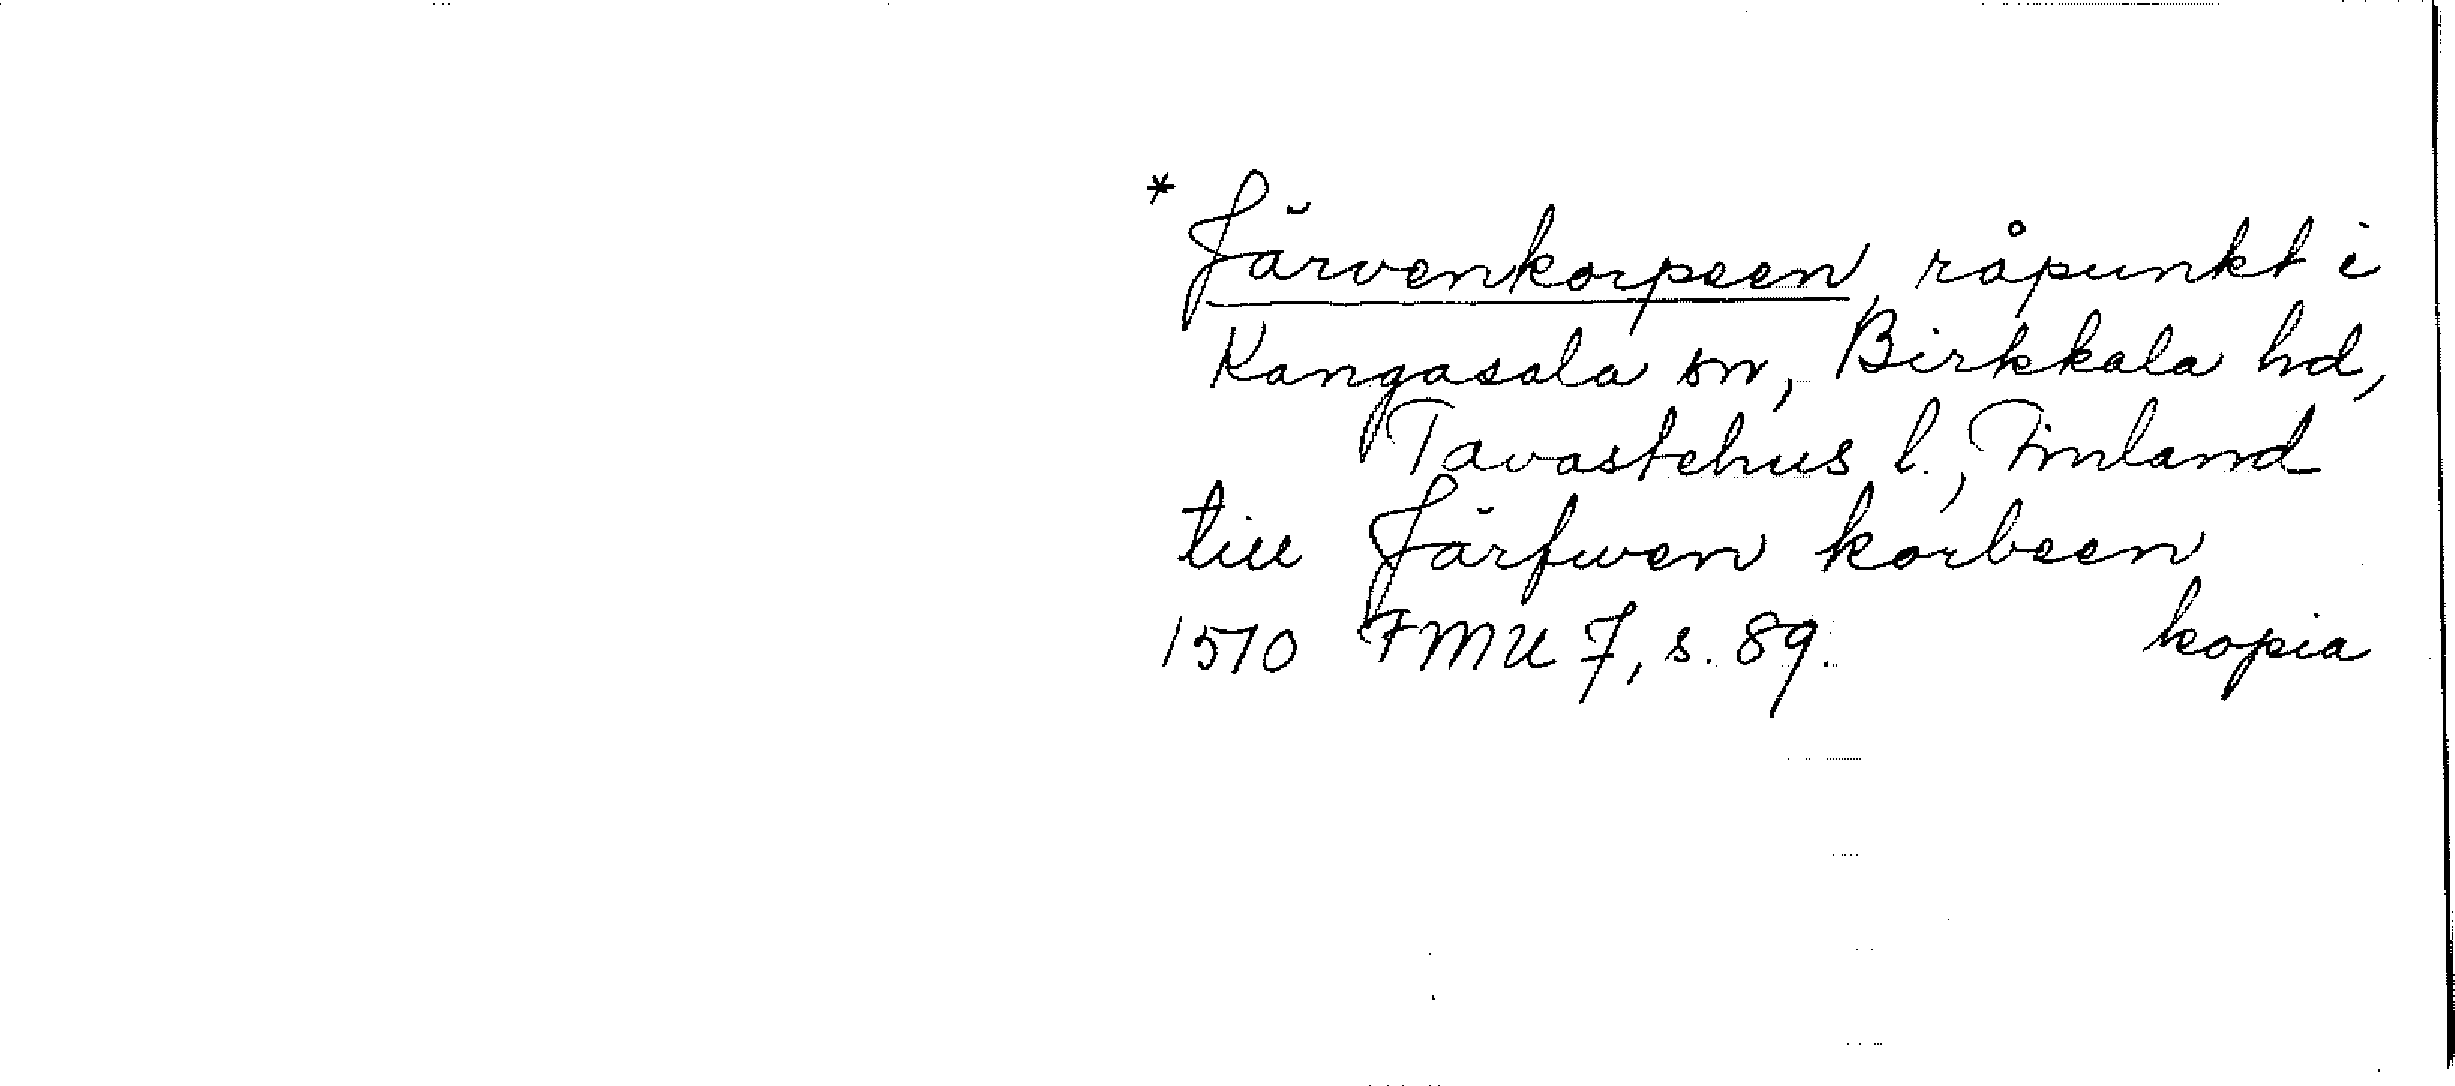 * Järvenkorpeen, råpunkt i
Kangasala sn, Birkkala hd,
Tavastehus l., Finland
till Järfwen korbeen
1510 FMU 7, s. 89. kopia